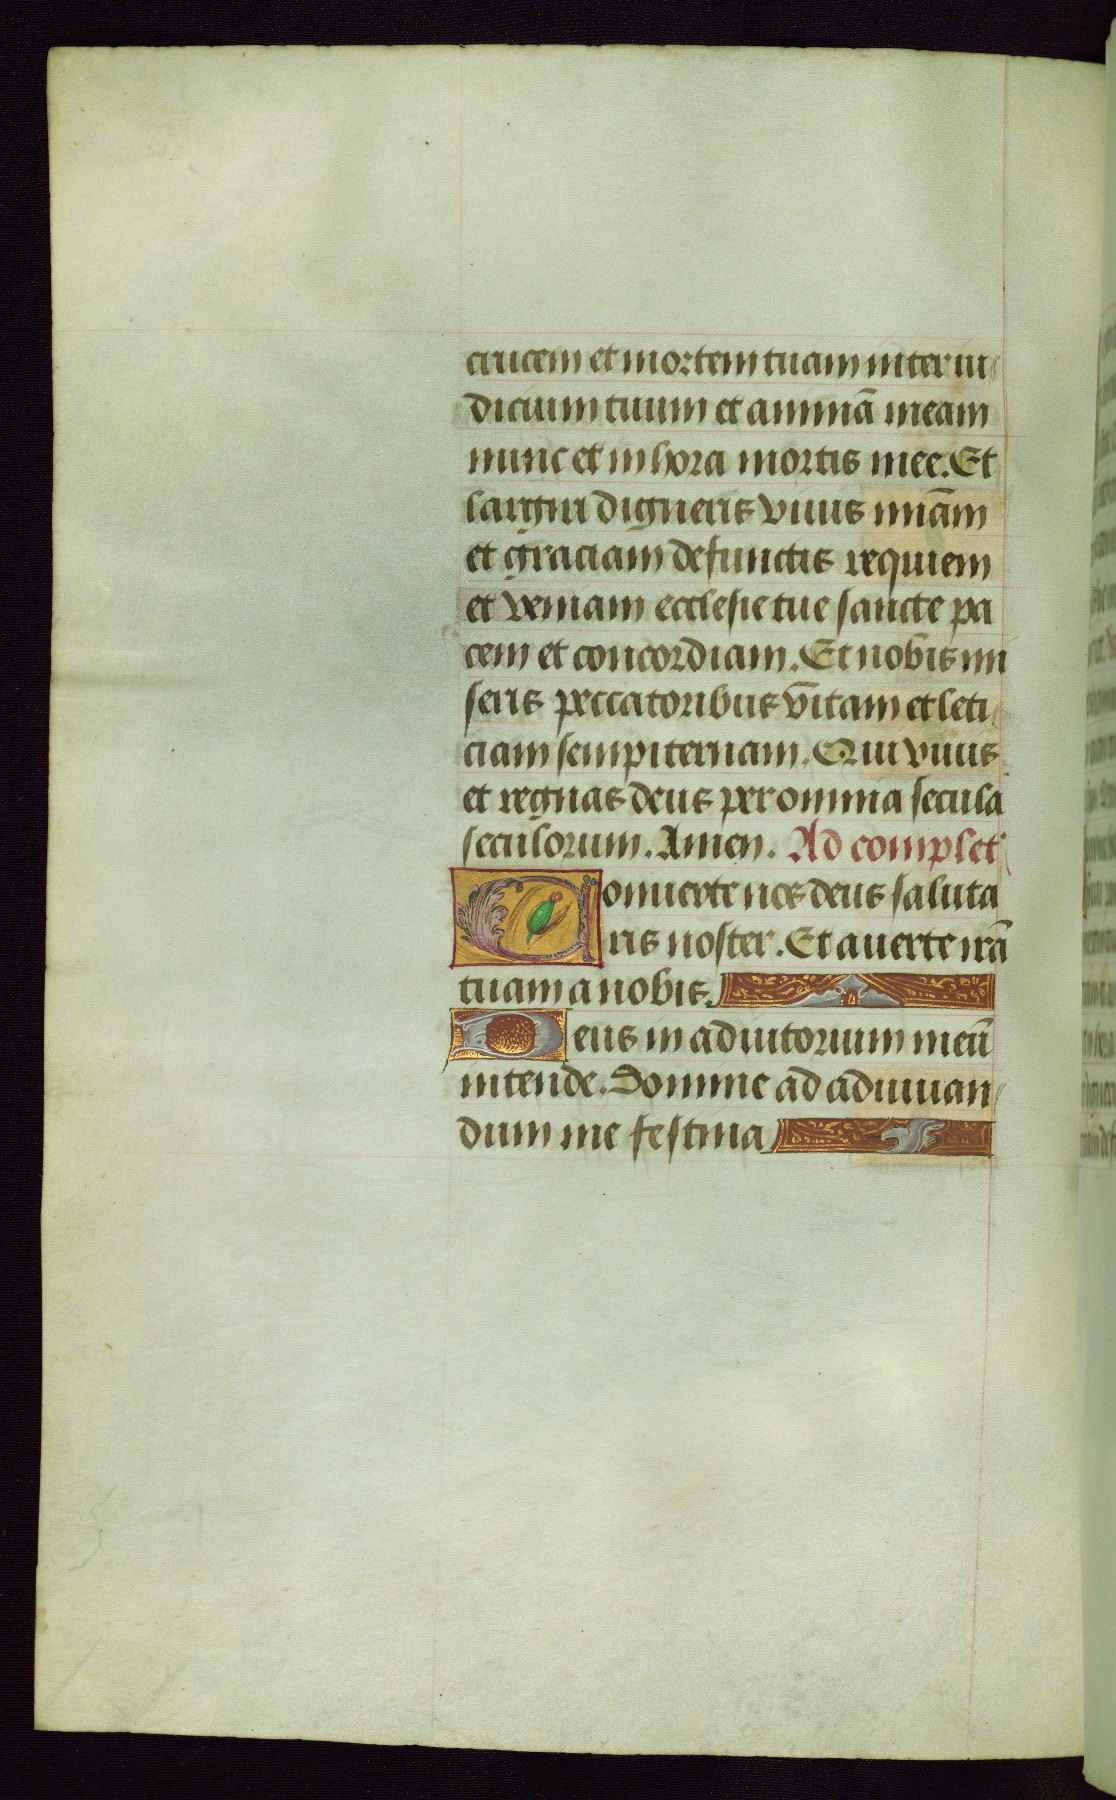 crucem et mortem tuam inter iu
dicium tuum et animā meam
nunc et in hora mortis mee. Et
largiri digneris viuis miām
et graciam defunctis requiem
et veniam ecclesie tue sancte pa
cem et concordiam. Et nobis mi
seris peccatoribus vitam et leti
ciam sempiternam. Qui viuis
et regnas deus per omnia secula
seculorum. Amen. Ad complet
Conuerte nos deus saluta
ris noster. Et auerte irā
tuam a nobis.
Deus in adiutorium meū
intende. Domine ad adiuuan
dum me festina